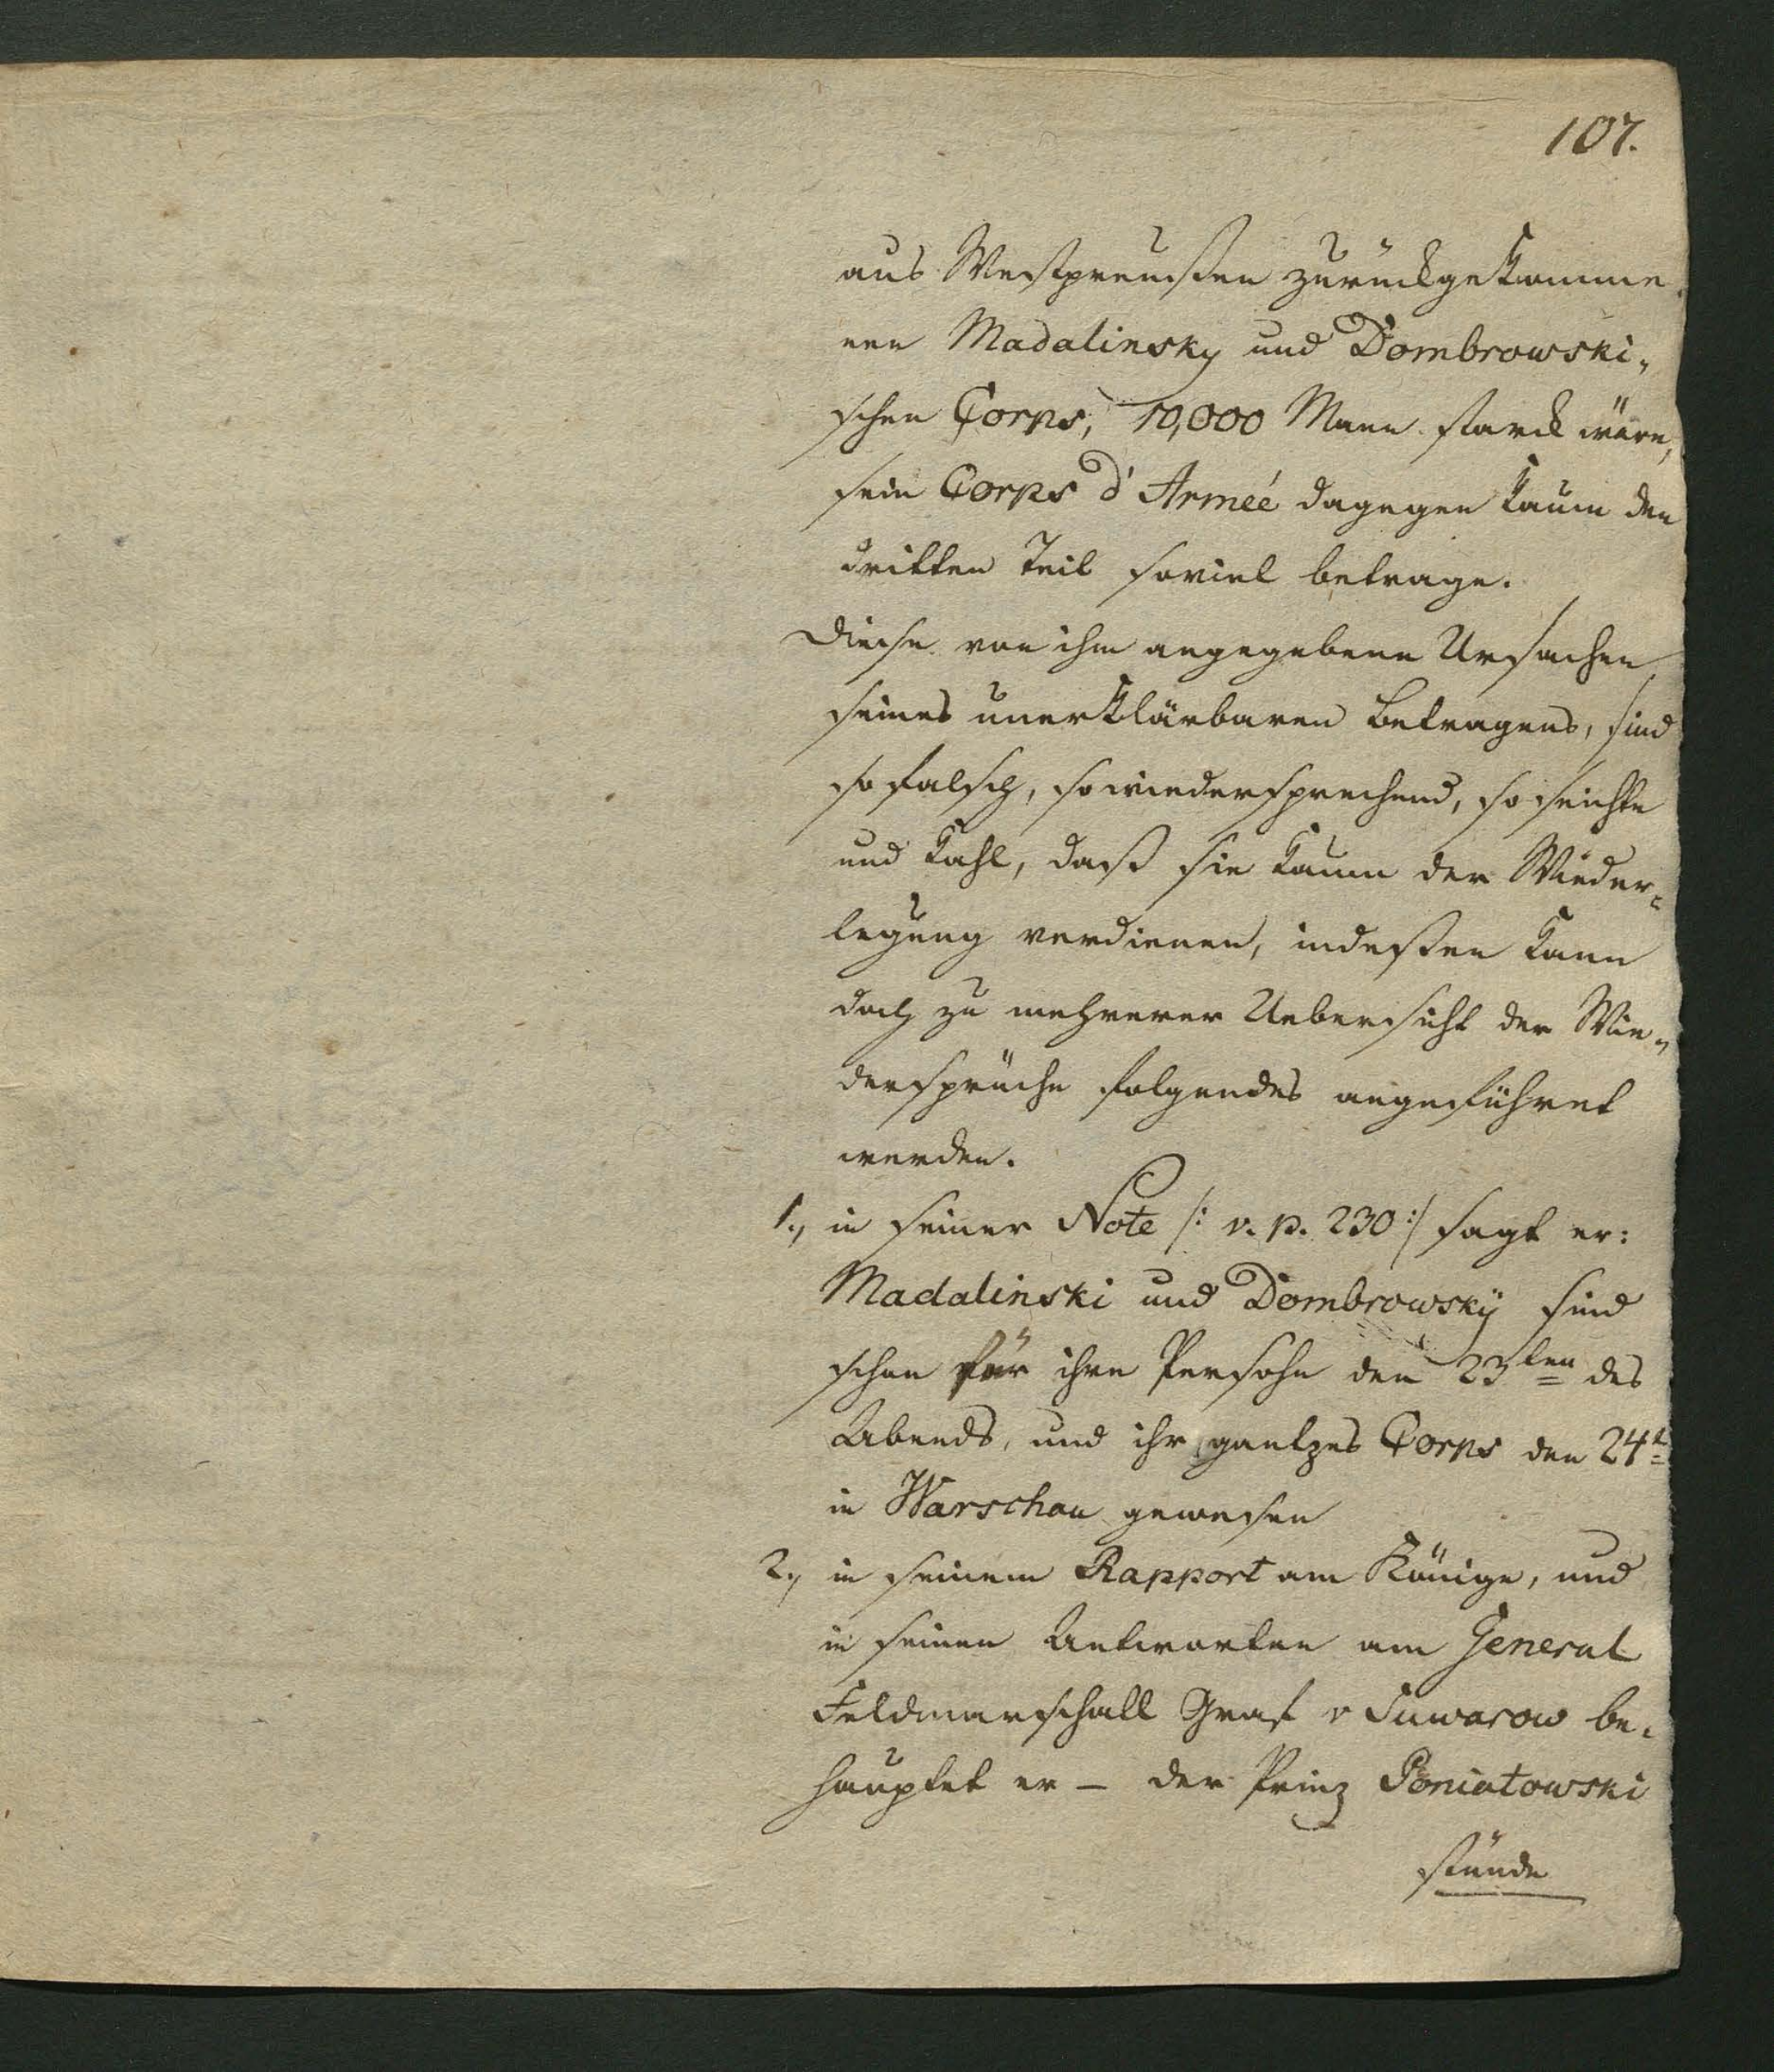 107.
aus Westpreußen zurückgekomme-
nen Madalinsky und Dombrowski-
schen Corps, 10,000 Mann starck wäre,
sein Corps d'Armeé dagegen kaum den
dritten Teil soviel betrage.
Diese von ihm angegebene Ursachen
seines unerklärbaren Betragens, sind
so falsch, so wiedersprechend, so seichte
und kahl, daß sie kaum der Wieder-
legung verdienen, indeßen kann
doch zu mehrerer Uebersicht der Wie-
dersprüche folgendes angeführet
werden.
1., in seiner Note /: v. p. 230 :/ sagt er:
Madalinski und Dombrowskÿ sind
schon für ihre Persohn den 23ten des
Abends, und ihr gantzes Corps den 24t
in Warschau gewesen
2., in seinem Rapport am Könige, und
in seinen Antworten am General
Feldmarschall Graf v Suwarow be-
hauptet er – der Prinz Poniatowski
stünde